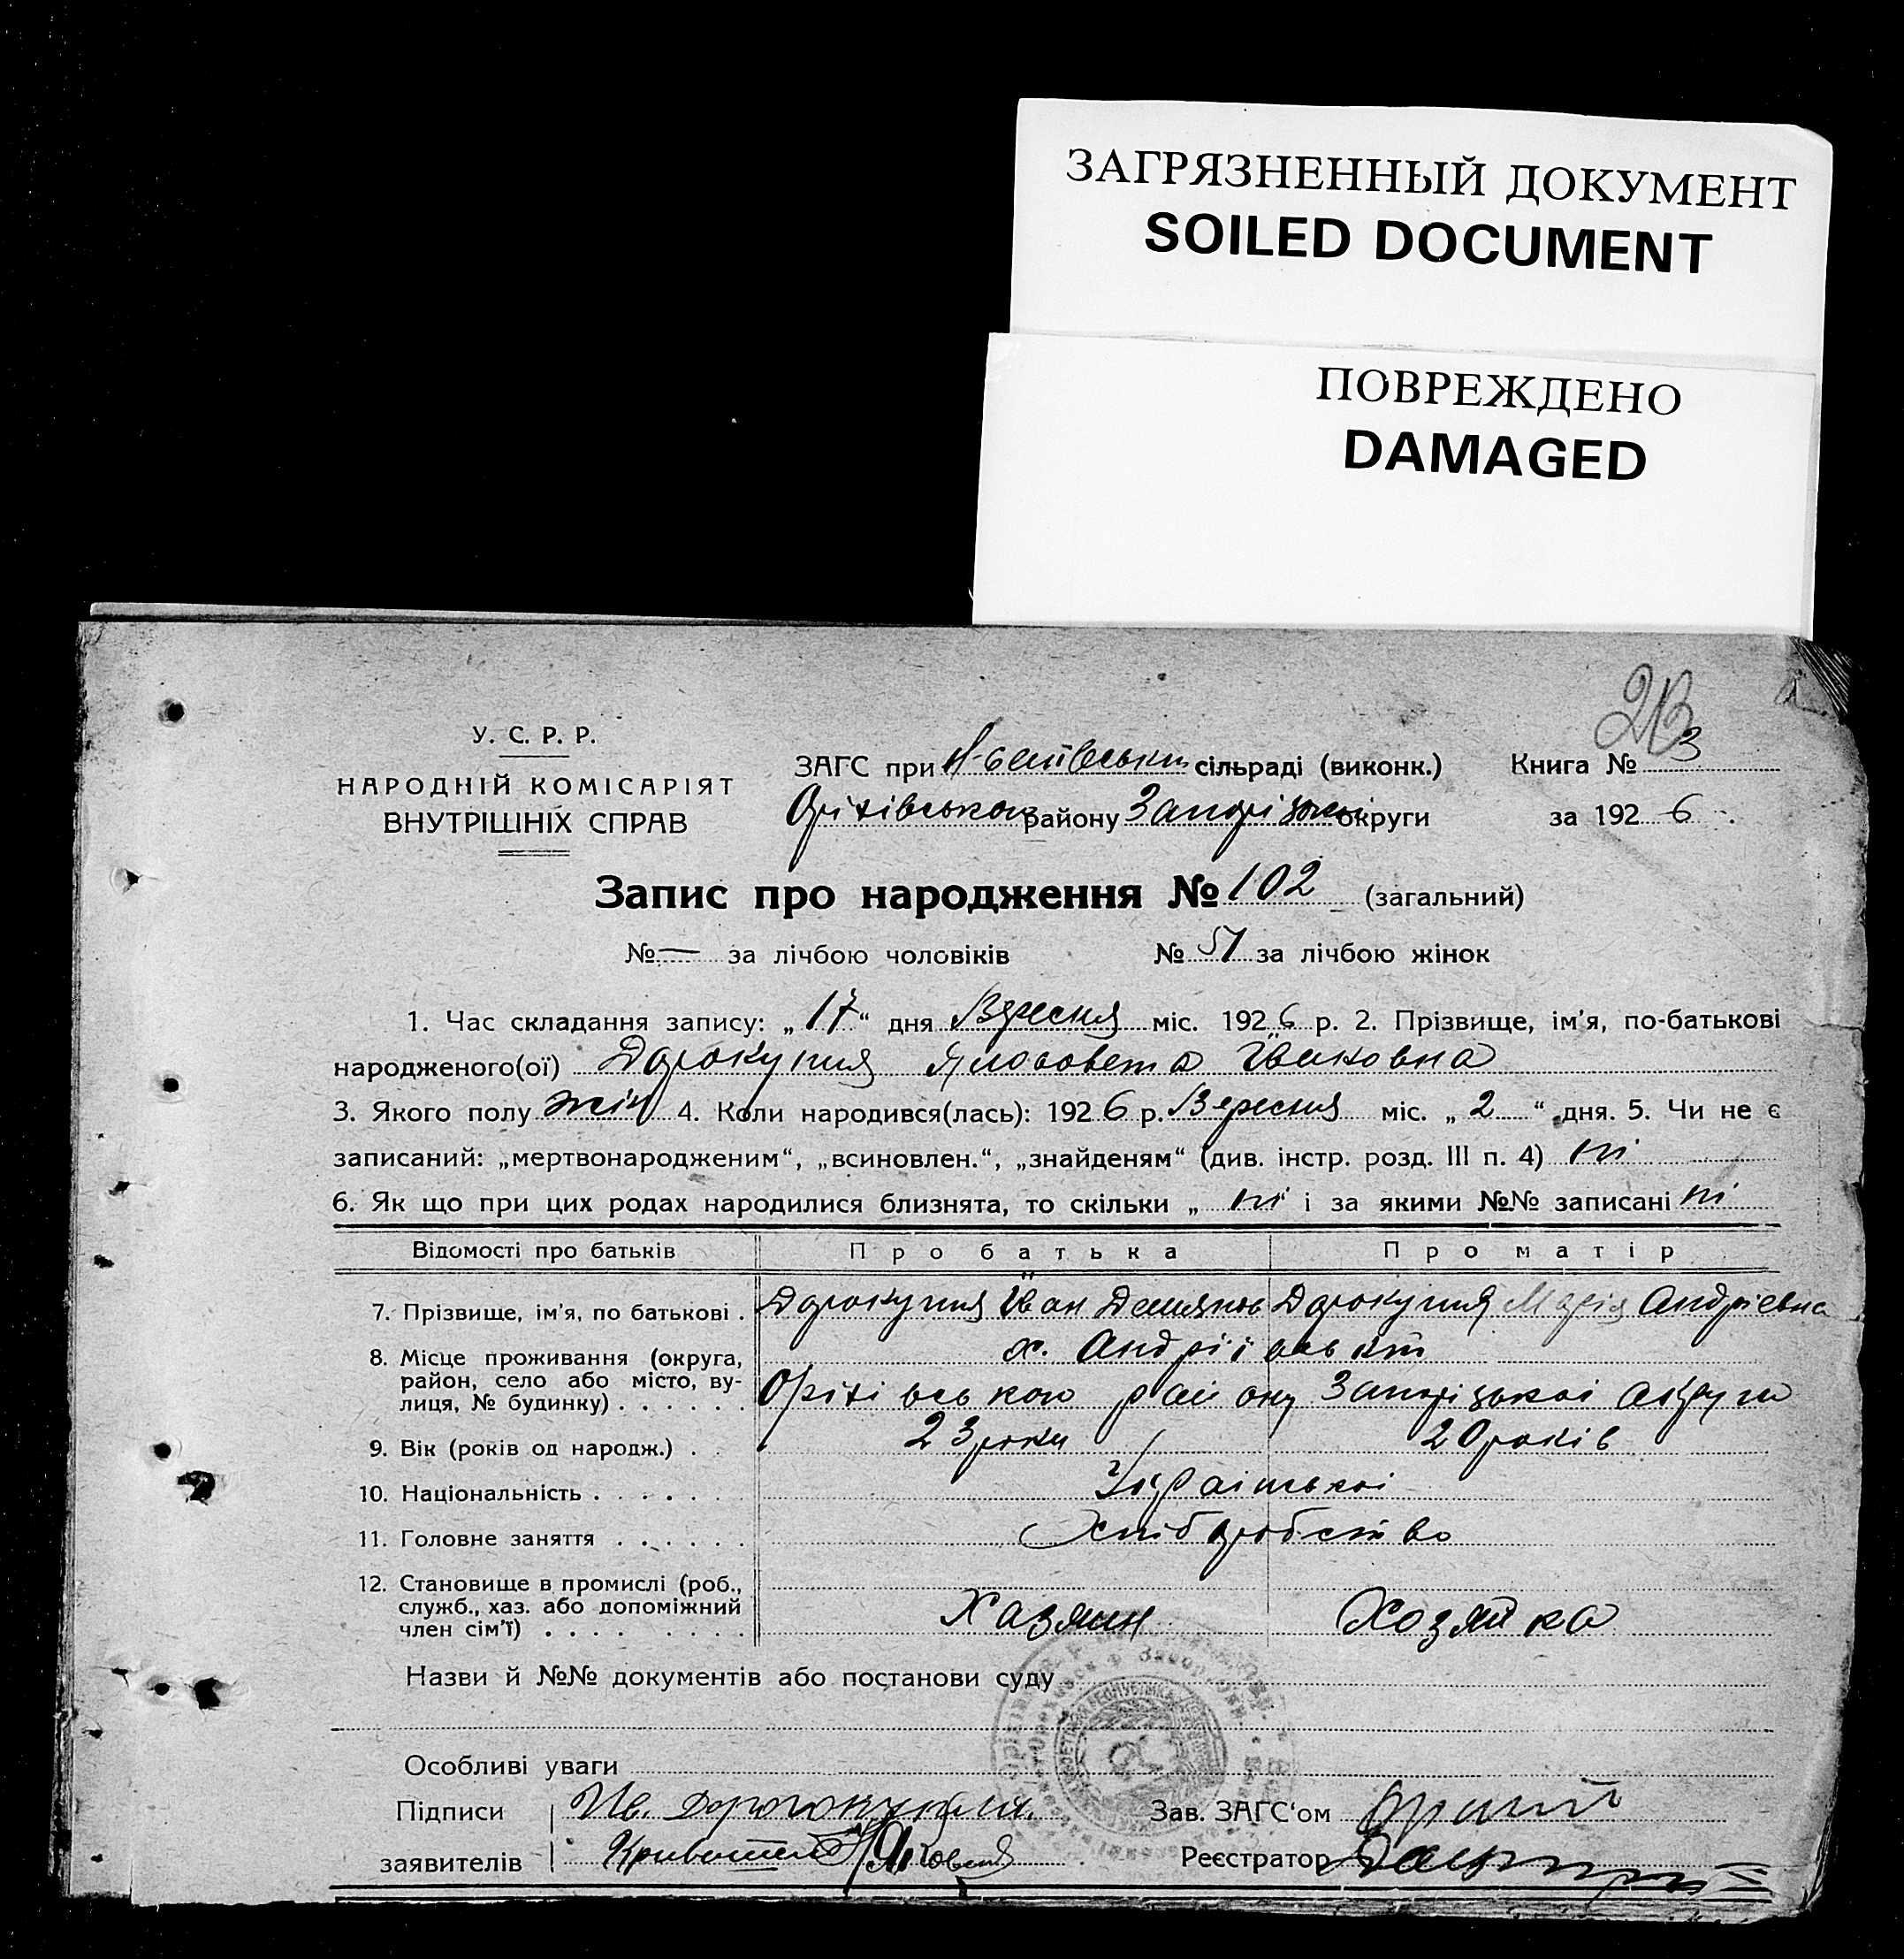 ЗАГРЯЗНЕННЫЙ ДОКУМЕНТ
SOILED DOCUMENT
ПОВРЕЖДЕНО
DAMAGED
3
У. С. Р. Р.
НАРОДНІЙ КОМІСАРІЯТ
ВНУТРІШНІХ СПРАВ
ЗАГС при сільраді (виконк.) Книга № 3
Оріхівського району Запоріжської округи за 1926
Запис про народження № 102 (загальний)
№ — за лічбою чоловіків № 51 за лічбою жінок
1. Час складання запису: „17“ дня Вересня міс. 1926 р. 2. Прізвище, ім'я, по-батькові
народженого(ої) Дорокупля Ивановна
3. Якого полу жін 4. Коли народився(лась): 1926 р. Вересня міс. „2“ дня. 5. Чи не є
записаний: „мертвонародженим“, „всиновлен.“, „знайденям“ (див. інстр. розд. III п. 4) ні
6. Як що при цих родах народилися близнята, то скільки „ні“ і за якими №№ записані ні
Відомості про батьків Про батька Про матір
7. Прізвище, ім'я, по батькові . Дорокупля Іван Демянов Дорокупля Марія Андріевна
8. Місце проживання (округа, х. Андріівськ
район, село або місто, ву-
лиця, № будинку) . . . . . . Оріхівського району Запоріжської округи
9. Вік (років од народж.) . . 23 роки 20 років
10. Національність . . . . . . Українськоі
11. Головне заняття . . . . . . Хліборобство
12. Становище в промислі (роб.,
служб., хаз. або допоміжний
член сім'ї) . . . . . . . . Хазяин Хозяйка
Назви й №№ документів або постанови суду
Особливі уваги
Підписи Ив. Дорогокупля. Зав. ЗАГС'ом
заявителів Реєстратор